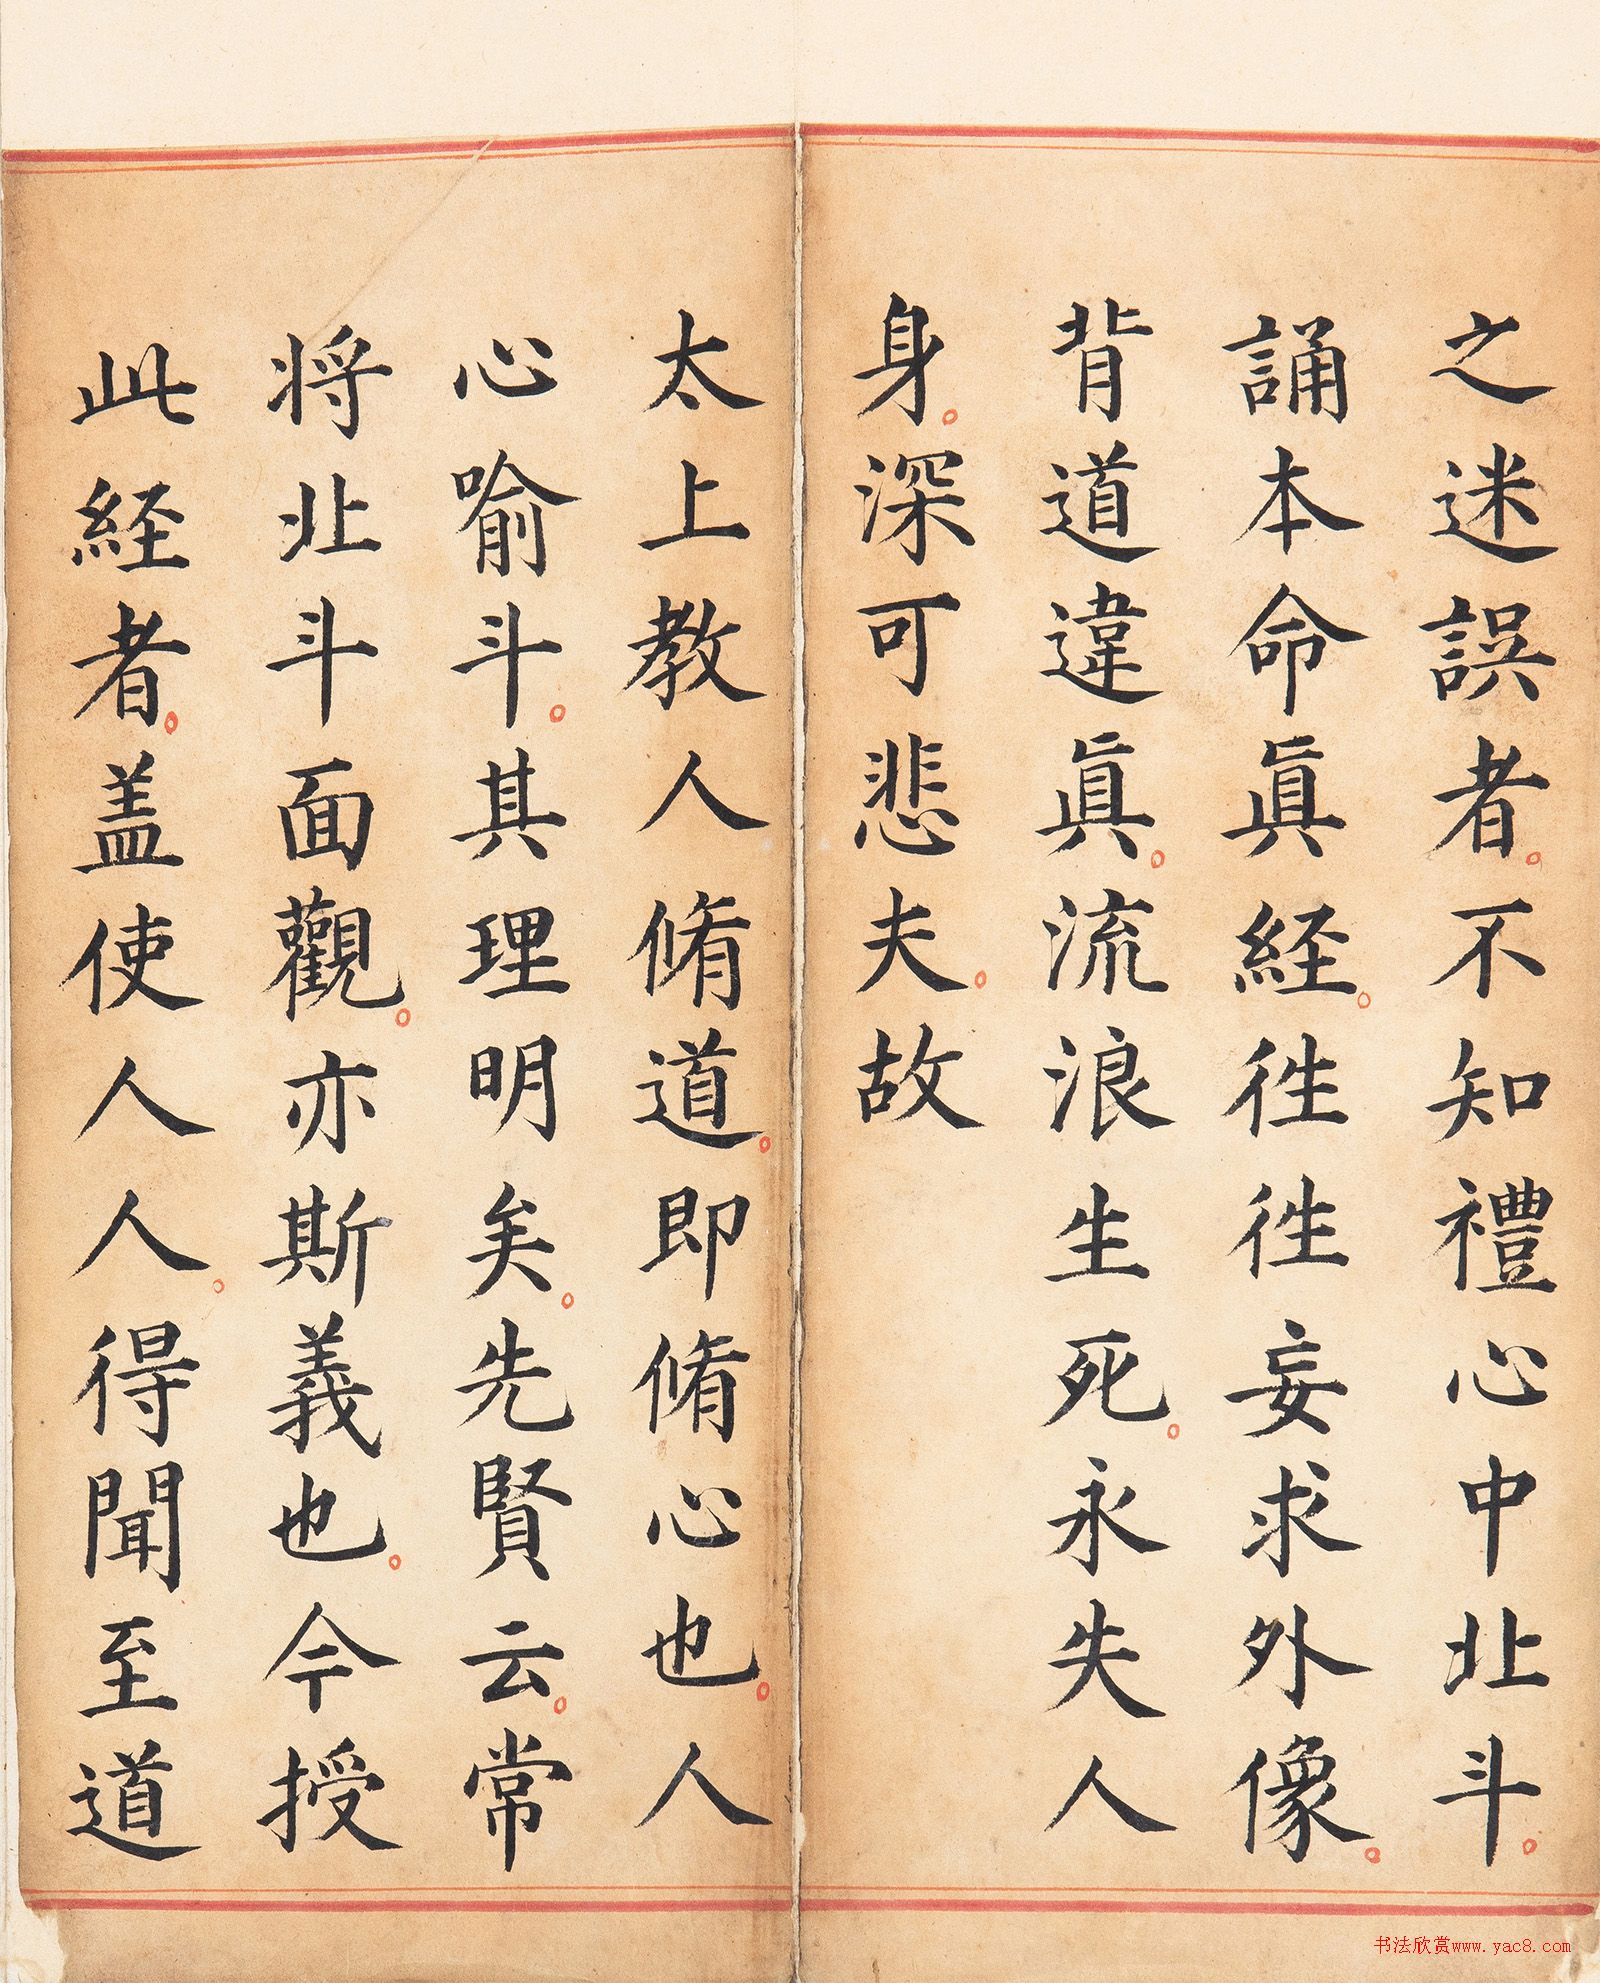 之迷誤者。不知禮心中北斗。
誦本命眞経。徃徃妄求外像。
背道違眞。流浪生死。永失人
身。深可悲夫。故
太上教人脩道。即脩心也。人
心喻斗。其理明矣。先賢云。常
将北斗面觀。亦斯義也。今授
此経者。盖使人人。得聞至道
书法欣赏www.yac8.com